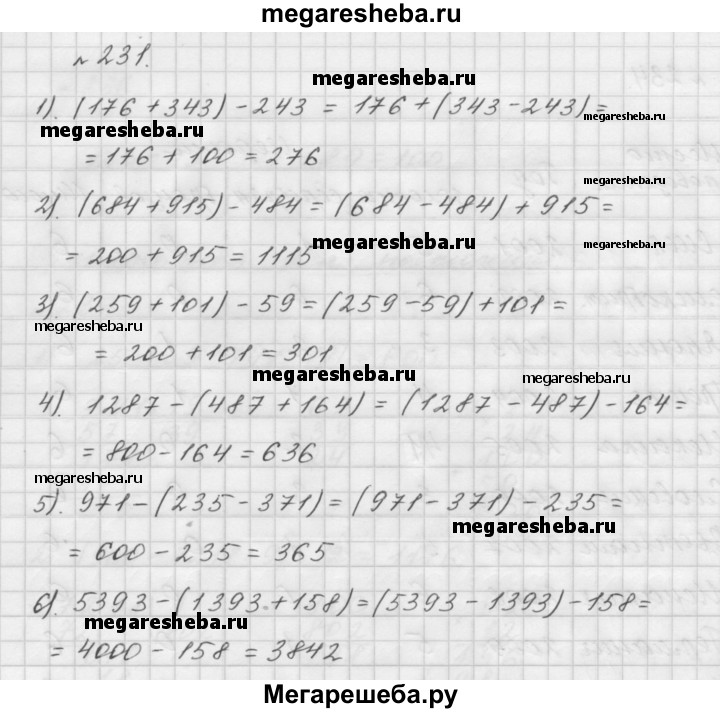 megaresheba.ru
№231.
megaresheba.ru
1). (176 + 343) - 243 = 176 + (343 - 243) =
megaresheba.ru
megaresheba.ru
= 176 + 100 = 276
megaresheba.ru
2). (684 + 915) - 484 = (684 - 484) + 915 =
megaresheba.ru
megaresheba.ru
= 200 + 915 = 1115
3). (259 + 101) - 59 = (259 - 59) + 101 =
megaresheba.ru
= 200 + 101 = 301
megaresheba.ru
megaresheba.ru
4). 1287 - (487 + 164) = (1287 - 487) - 164 =
= 800 - 164 = 636
megaresheba.ru
5). 971 - (235 - 371) = (971 - 371) - 235 =
megaresheba.ru
= 600 - 235 = 365
6). 5393 - (1393 + 158) = (5393 - 1393) - 158 =
megaresheba.ru
= 4000 - 158 = 3842
Мегарешеба.ру